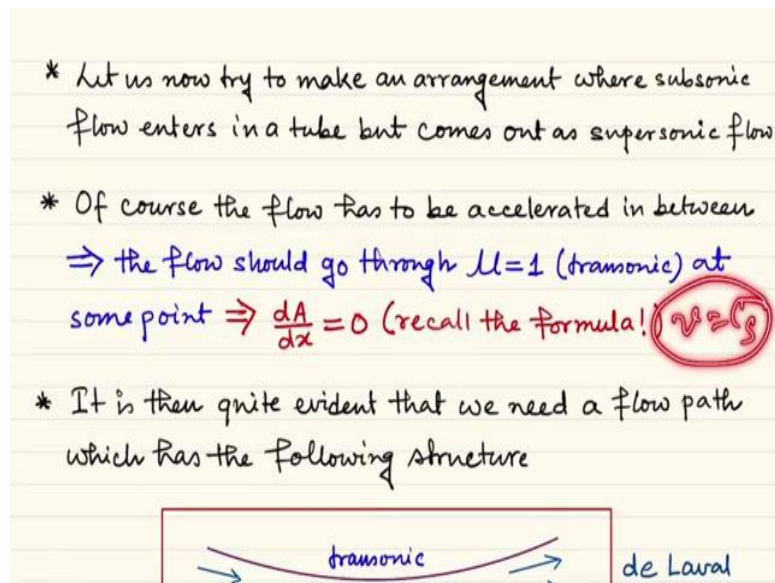 * Let us now try to make an arrangement where subsonic
flow enters in a tube but comes out as supersonic flow
* Of course the flow has to be accelerated in between
⇒ the flow should go through M=1 (transonic) at
some point ⇒ dA/dx = 0 (recall the formula!) v=c_s
* It is then quite evident that we need a flow path
which has the following structure
transonic
de Laval